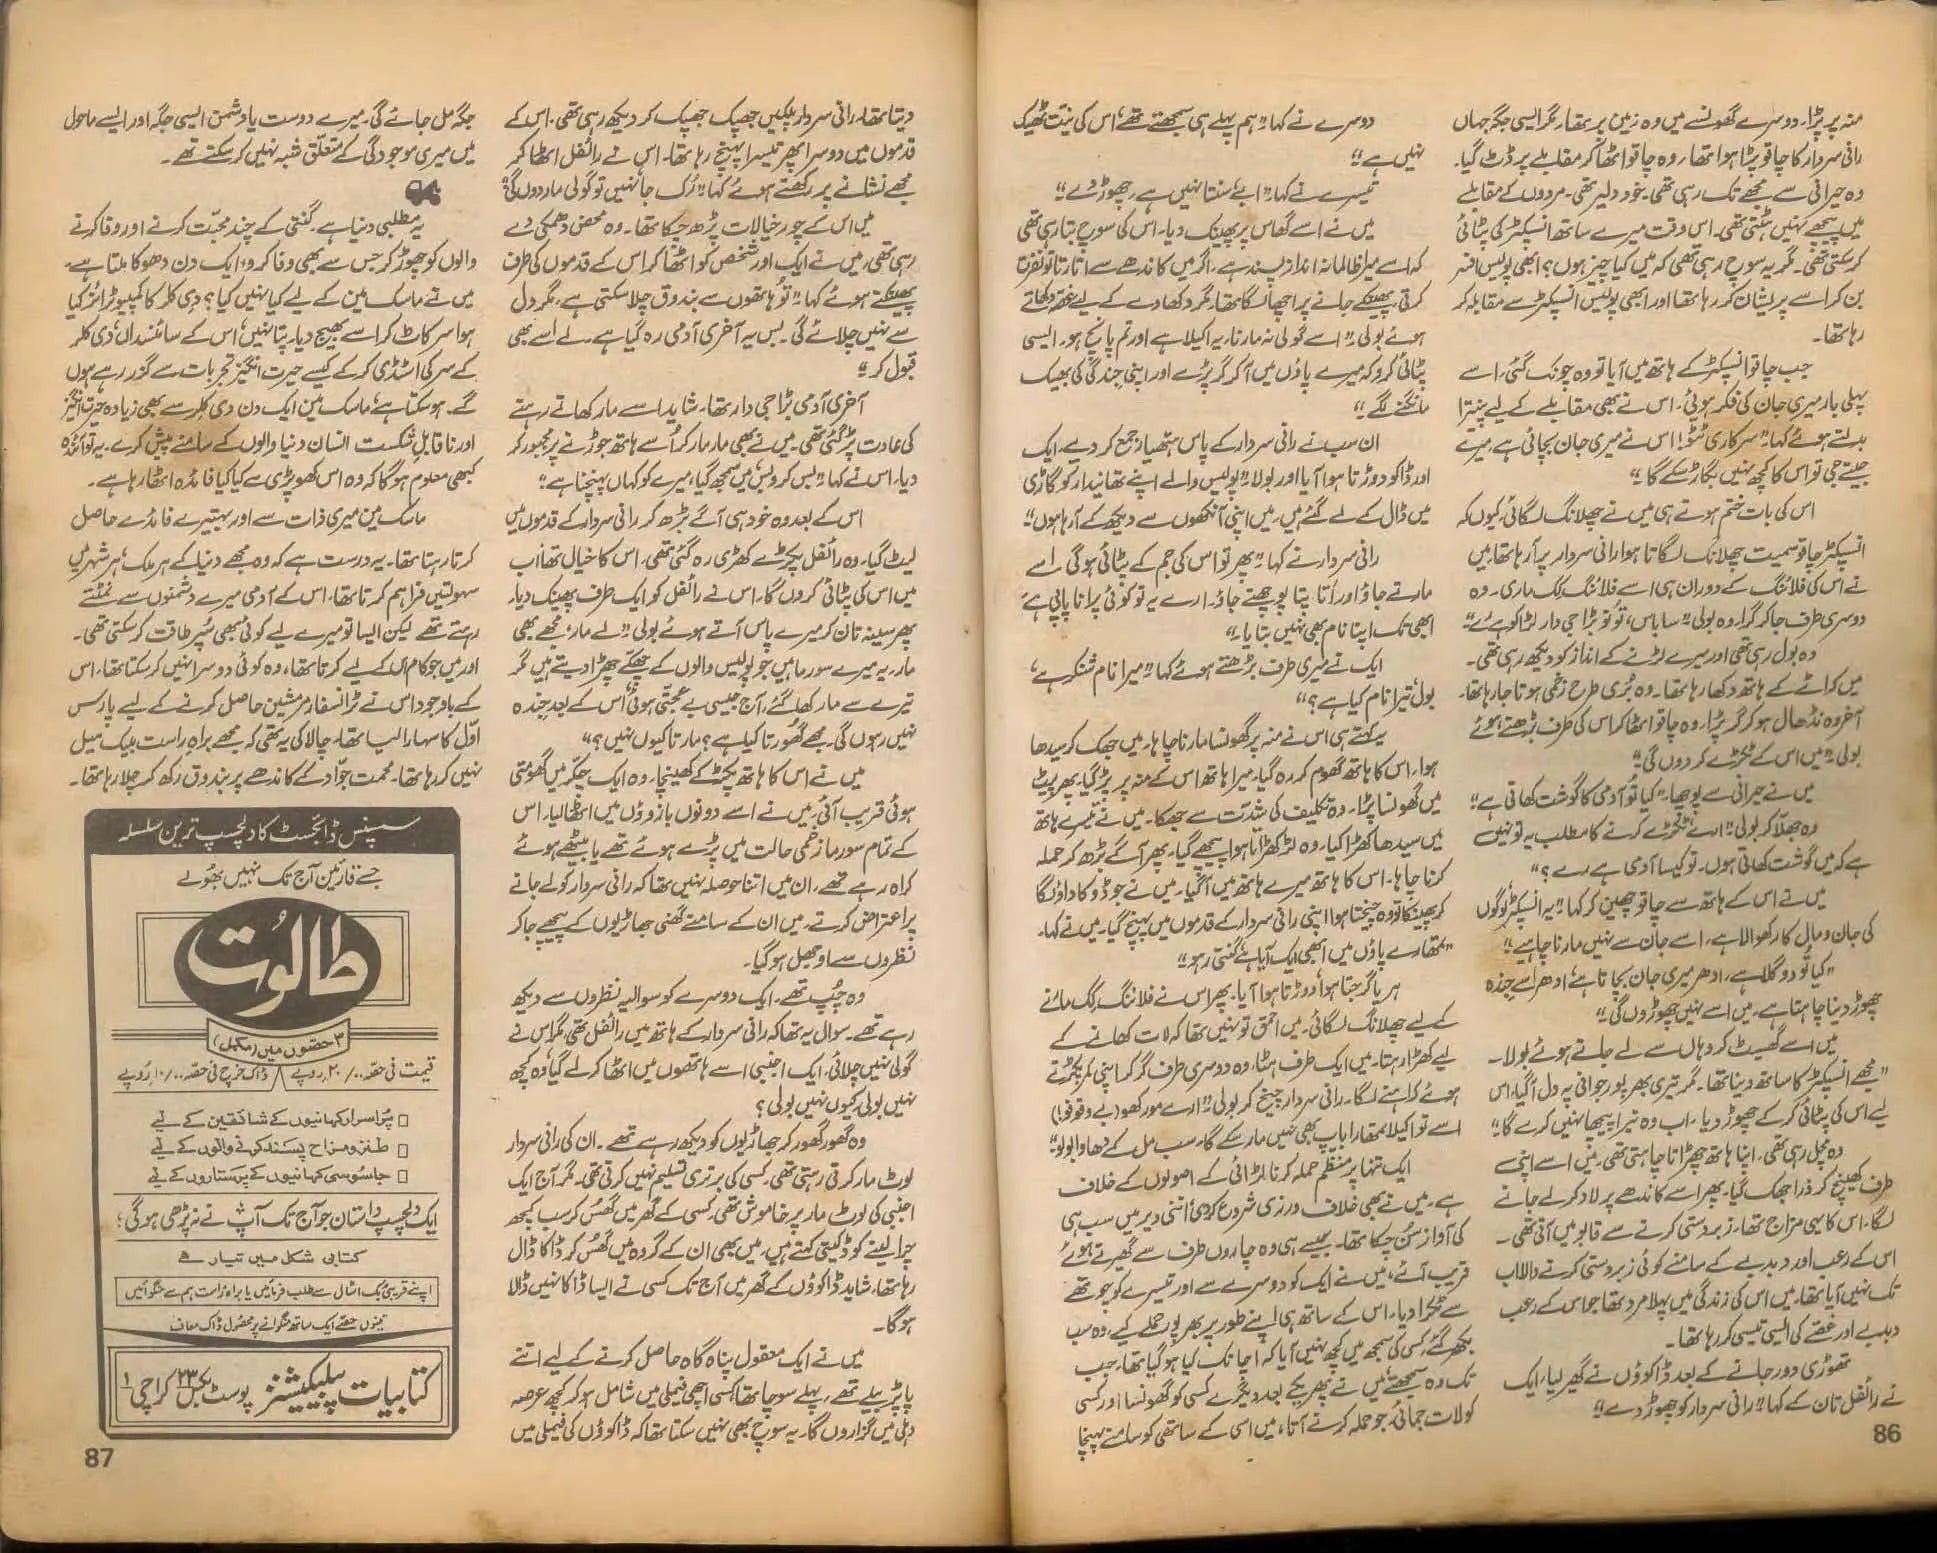 منہ پر پڑا۔ دوسرے گھونسے میں وہ زمین پر تھا۔ مگر ایسی جگہ جہاں
رانی سردار کا چاقو پڑا ہوا تھا۔ وہ چاقو اٹھا کر مقابلے پر ڈٹ گیا۔
وہ حیرانی سے مجھے تک رہی تھی۔ خود دلیر تھی۔ مردوں کے مقابلے
میں پیچھے نہیں ہٹتی تھی۔ اس وقت میرے ساتھ انسپکٹر کی پٹائی
کر سکتی تھی۔ مگر یہ سوچ رہی تھی کہ میں کیا چیز ہوں؟ ابھی پولیس افسر
بن کر اسے پریشان کر رہا تھا اور ابھی پولیس انسپکٹر سے مقابلہ کر
رہا تھا۔
جب چاقو انسپکٹر کے ہاتھ میں آیا تو وہ چونک گئی۔ اسے
پہلی بار میری جان کی فکر ہوئی۔ اس نے بھی مقابلے کے لیے پینترا
بدلتے ہوئے کہا "سرکاری ٹٹو! اس نے میری جان بچائی ہے میرے
جیتے جی تو اس کا کچھ نہیں بگاڑ سکے گا"
اس کی بات ختم ہوتے ہی میں نے چھلانگ لگائی، کیوں کہ
انسپکٹر چاقو سمیت چھلانگ لگاتا ہوا رانی سردار پر آرہا تھا۔ میں
نے اس کی فلائنگ کے دوران ہی اسے فلائنگ کک ماری۔ وہ
دوسری طرف جا کر گرا۔ وہ بولی "ساباس، تو تو بڑا جی دار لڑاکو ہے رے"
وہ بول رہی تھی اور میرے لڑنے کے انداز کو دیکھ رہی تھی۔
میں کراٹے کے ہاتھ دکھا رہا تھا۔ وہ بُری طرح زخمی ہوتا جا رہا تھا۔
آخر وہ نڈھال ہو کر گر پڑا۔ وہ چاقو اٹھا کر اس کی طرف بڑھتے ہوئے
بولی "میں اس کے ٹکڑے کر دوں گی"
میں نے حیرانی سے پوچھا "کیا تُو آدمی کا گوشت کھاتی ہے"
وہ جھلّا کر بولی "ارے ٹکڑے کرنے کا مطلب یہ تو نہیں
ہے کہ میں گوشت کھاتی ہوں۔ تو کیسا آدمی ہے رے؟"
میں نے اس کے ہاتھ سے چاقو چھین کر کہا "یہ انسپکٹر لوگوں
کی جان و مال کا رکھوالا ہے، اسے جان سے نہیں مارنا چاہیے"
"کیا تُو دوگلا ہے، ادھر میری جان بچاتا ہے، ادھر اسے جندہ
چھوڑ دینا چاہتا ہے۔ میں اسے نہیں چھوڑوں گی"
میں اسے گھسیٹ کر وہاں سے لے جاتے ہوئے بولا۔
"مجھے انسپکٹر کا ساتھ دینا تھا۔ مگر تیری بھرپور جوانی پہ دل آگیا، اس
لیے اس کی پٹائی کر کے چھوڑ دیا۔ اب وہ تیرا پیچھا نہیں کرے گا"
وہ مچل رہی تھی۔ اپنا ہاتھ چھڑانا چاہتی تھی۔ میں اسے اپنی
طرف کھینچ کر ذرا جھک گیا۔ پھر اسے کاندھے پر لاد کر لے جانے
لگا۔ اس کا یہی مزاج تھا۔ زبردستی کرنے سے قابو میں آتی تھی۔
اس کے رعب اور دبدبے کے سامنے کوئی زبردستی کرنے والا اب
تک نہیں آیا تھا۔ میں اس کی زندگی میں پہلا مرد تھا جو اس کے رعب
دبدبے اور غصے کی ایسی تیسی کر رہا تھا۔
تھوڑی دور جانے کے بعد ڈاکوؤں نے گھیر لیا۔ ایک
نے رائفل تان کے کہا "رانی سردار کو چھوڑ دے"
86
دوسرے نے کہا "ہم پہلے ہی سمجھتے تھے، اس کی نیت ٹھیک
نہیں ہے"
تیسرے نے کہا "ابے سنتا نہیں ہے، چھوڑ دے"
میں نے اسے گھاس پر پھینک دیا۔ اس کی سوچ بتا رہی تھی
کہ اسے میرا ظالمانہ انداز پسند ہے، اگر میں کاندھے سے اتارتا تو نفرت
کرتی، پھینکے جانے پر اچھا لگا تھا۔ مگر دکھاوے کے لیے غصہ دکھاتے
ہوئے بولی "اسے گولی نہ مارنا۔ یہ اکیلا ہے اور تم پانچ ہو۔ ایسی
پٹائی کرو کہ میرے پاؤں میں آ کر گر پڑے اور اپنی جندگی کی بھیک
مانگنے لگے"
ان سب نے رانی سردار کے پاس ہتھیار جمع کر دیے، ایک
اور ڈاکو دوڑتا ہوا آیا اور بولا "پولیس والے اپنے تھانیدار کو گاڑی
میں ڈال کے لے گئے ہیں۔ میں اپنی آنکھوں سے دیکھ کے آرہا ہوں"
رانی سردار نے کہا "پھر تو اس کی جم کے پٹائی ہوگی۔ اسے
مارتے جاؤ اور اتا پتا پوچھتے جاؤ۔ ارے یہ تو کوئی پرانا پاپی ہے
ابھی تک اپنا نام بھی نہیں بتایا"
ایک نے میری طرف بڑھتے ہوئے کہا "میرا نام شنکر ہے،
بول تیرا نام کیا ہے؟"
یہ کہتے ہی اس نے منہ پر گھونسا مارنا چاہا۔ میں جھک کر سیدھا
ہوا۔ اس کا ہاتھ گھوم کر رہ گیا۔ میرا ہاتھ اس کے منہ پر پڑ گیا۔ پھر پیٹ
میں گھونسا پڑا۔ وہ تکلیف کی شدّت سے جھکا۔ میں نے تیسرے ہاتھ
میں سیدھا کھڑا کیا۔ وہ لڑکھڑاتا ہوا پیچھے گیا۔ پھر آگے بڑھ کر حملہ
کرنا چاہا۔ اس کا ہاتھ میرے ہاتھ میں آگیا۔ میں نے جوڈو کا داؤ لگا
کر پھینکا تو وہ چیختا ہوا اپنی رانی سردار کے قدموں میں پہنچ گیا۔ میں نے کہا۔
"تمھارے پاؤں میں ابھی ایک آیا ہے گنتی رہو"
ہریا گرجتا ہوا دوڑتا ہوا آیا۔ پھر اس نے فلائنگ کک مارنے
کے لیے چھلانگ لگائی۔ میں احمق تو نہیں تھا کہ لات کھانے کے
لیے کھڑا رہتا۔ میں ایک طرف ہٹا، وہ دوسری طرف گر کر اپنی کمر پکڑتے
ہوئے کراہنے لگا۔ رانی سردار چیخ کر بولی "ارے مورکھو (بے وقوفو!)
اسے تو اکیلا تمھارا باپ بھی نہیں مار سکے گا، سب مل کے دھاوا بولو"
ایک تنہا پر منظم حملہ کرنا لڑائی کے اصولوں کے خلاف
ہے۔ میں نے بھی خلاف ورزی شروع کردی، اتنی دیر میں سب ہی
کی آواز سُن چکا تھا۔ جیسے ہی وہ چاروں طرف سے گھیرتے ہوئے
قریب آئے، میں نے ایک کو دوسرے سے اور تیسرے کو چوتھے
سے ٹکرا دیا۔ اس کے ساتھ ہی اپنے طور پر بھرپور حملے کیے، وہ سب
بکھر گئے، کسی کی سمجھ میں کچھ نہیں آیا کہ اچانک کیا ہو گیا تھا۔ جب
تک وہ سمجھتے، میں نے پھر یکے بعد دیگرے کسی کو گھونسا اور کسی
کو لات جمائی، جو حملہ کرنے آتا، میں اسی کے ساتھی کو سامنے پہنچا
دیتا تھا۔ رانی سردار پلکیں جھپک جھپک کر دیکھ رہی تھی۔ اس کے
قدموں میں دوسرا پھر تیسرا پہنچ رہا تھا۔ اس نے رائفل اٹھا کر
مجھے نشانے پر رکھتے ہوئے کہا "رُک جا نہیں تو گولی مار دوں گی"
میں اس کے چور خیالات پڑھ چکا تھا۔ وہ محض دھمکی دے
رہی تھی۔ میں نے ایک اور شخص کو اٹھا کر اس کے قدموں کی طرف
پھینکتے ہوئے کہا "تُو ہاتھوں سے بندوق چلا سکتی ہے، مگر دل
سے نہیں چلائے گی۔ بس یہ آخری آدمی رہ گیا ہے۔ لے اسے بھی
قبول کر"
آخری آدمی بڑا جی دار تھا۔ شاید اسے مار کھاتے رہنے
کی عادت پڑ گئی تھی۔ میں نے بھی مار مار کر اُسے ہاتھ جوڑنے پر مجبور کر
دیا۔ اس نے کہا "بس کرو بس، میں سمجھ گیا، میرے کو کہاں پہنچنا ہے"
اس کے بعد وہ خود ہی آگے بڑھ کر رانی سردار کے قدموں میں
لیٹ گیا۔ وہ رائفل پکڑے کھڑی رہ گئی تھی۔ اس کا خیال تھا، اب
میں اس کی پٹائی کروں گا۔ اس نے رائفل کو ایک طرف پھینک دیا۔
پھر سینہ تان کر میرے پاس آتے ہوئے بولی "لے مار، مجھے بھی
مار، یہ میرے سورما ہیں جو پولیس والوں کے چھکے چھڑا دیتے ہیں مگر
تیرے سے مار کھا گئے، آج جیسی بے عجتی ہوئی، اُس کے بعد جندہ
نہیں رہوں گی۔ مجھے گھُورتا کیا ہے؟ مارتا کیوں نہیں؟"
میں نے اس کا ہاتھ پکڑ کے کھینچا۔ وہ ایک چکّر میں گھومتی
ہوئی قریب آئی، میں نے اسے دونوں بازوؤں میں اٹھا لیا۔ اس
کے تمام سورما زخمی حالت میں پڑے ہوئے تھے یا بیٹھے ہوئے
کراہ رہے تھے، ان میں اتنا حوصلہ نہیں تھا کہ رانی سردار کو لے جانے
پر اعتراض کرتے۔ میں ان کے سامنے گھنی جھاڑیوں کے پیچھے جا کر
نظروں سے اوجھل ہو گیا۔
وہ چُپ تھے۔ ایک دوسرے کو سوالیہ نظروں سے دیکھ
رہے تھے۔ سوال یہ تھا کہ رانی سردار کے ہاتھ میں رائفل تھی، مگر اس نے
گولی نہیں چلائی، ایک اجنبی اسے ہاتھوں میں اٹھا کر لے گیا، وہ کچھ
نہیں بولی، کیوں نہیں بولی؟
وہ گھور گھور کر جھاڑیوں کو دیکھ رہے تھے۔ ان کی رانی سردار
لوٹ مار کرتی رہتی تھی۔ کسی کی برتری تسلیم نہیں کرتی تھی۔ مگر آج ایک
اجنبی کی لوٹ مار پر خاموش تھی، کسی کے گھر میں گھُس کر سب کچھ
چرا لینے کو ڈکیتی کہتے ہیں، میں بھی ان کے گروہ میں گھُس کر ڈاکا ڈال
رہا تھا، شاید ڈاکوؤں کے گھر میں آج تک کسی نے ایسا ڈاکا نہیں ڈالا
ہوگا۔
میں نے ایک معقول پناہ گاہ حاصل کرنے کے لیے اتنے
پاپڑ بیلے تھے، پہلے سوچا تھا، کسی اچھی فیملی میں شامل ہو کر کچھ عرصہ
دہلی میں گزاروں گا۔ یہ سوچ بھی نہیں سکتا تھا کہ ڈاکوؤں کی فیملی میں
جگہ مل جائے گی۔ میرے دوست یا دشمن ایسی جگہ اور ایسے ماحول
میں میری موجودگی کے متعلّق شبہ نہیں کر سکتے تھے۔
یہ مطلبی دنیا ہے۔ گنتی کے چند محبّت کرنے اور وفا کرنے
والوں کو چھوڑ کر جس سے بھی وفا کرو، ایک دن دھوکا ملتا ہے۔
میں نے ماسک مین کے لیے کیا نہیں کیا؟ دی کلر کا کمپیوٹرائزڈ کیا
ہوا سر کاٹ کر اسے بھیج دیا۔ پتا نہیں، اس کے سائنسداں، دی کلر
کے سر کی اسٹڈی کر کے کیسے حیرت انگیز تجربات سے گزر رہے ہوں
گے۔ ہوسکتا ہے، ماسک مین ایک دن دی کلر سے بھی زیادہ حیرت انگیز
اور ناقابلِ شکست انسان دنیا والوں کے سامنے پیش کرے۔ یہ تو آئندہ
کبھی معلوم ہوگا کہ وہ اس کھوپڑی سے کیا کیا فائدہ اٹھا رہا ہے۔
ماسک مین میری ذات سے اور بہتیرے فائدے حاصل
کرتا رہتا تھا۔ یہ درست ہے کہ وہ مجھے دنیا کے ہر ملک، ہر شہر میں
سہولتیں فراہم کرتا تھا۔ اس کے آدمی میرے دشمنوں سے نمٹتے
رہتے تھے لیکن ایسا تو میرے لیے کوئی بھی سُپر طاقت کر سکتی تھی۔
اور میں جو کام اس کے لیے کرتا تھا، وہ کوئی دوسرا نہیں کر سکتا تھا۔ اس
کے باوجود اس نے ٹرانسفارمر مشین حاصل کرنے کے لیے پارس
اوّل کا سہارا لیا تھا۔ چالاکی یہ تھی کہ مجھے براہِ راست بلیک میل
نہیں کر رہا تھا۔ محبت جوّاد کے کاندھے پر بندوق رکھ کر چلا رہا تھا۔
سسپنس ڈائجسٹ کا دلچسپ ترین سلسلہ
جسے قارئین آج تک نہیں بھُولے
طالوُت
۳ حصّوں میں (مکمل)
قیمت فی حصّہ ۲۰/۰۰ روپے / ڈاک خرچ فی حصّہ ۱۰/۰۰ روپے
□ پُراسرار کہانیوں کے شائقین کے لیے
□ طنز و مزاح پسند کرنے والوں کے لیے
□ جاسوسی کہانیوں کے پرستاروں کے لیے
ایک دلچسپ داستان جو آج تک آپ نے نہ پڑھی ہوگی؛
کتابی شکل میں تیار ہے
اپنے قریبی بک اسٹال سے طلب فرمائیں یا براہ راست ہم سے منگوائیں
تینوں حصّے ایک ساتھ منگوانے پر محصُول ڈاک معاف
کتابیات پبلیکیشنز پوسٹ بکس ۲۳ کراچی ۱
87